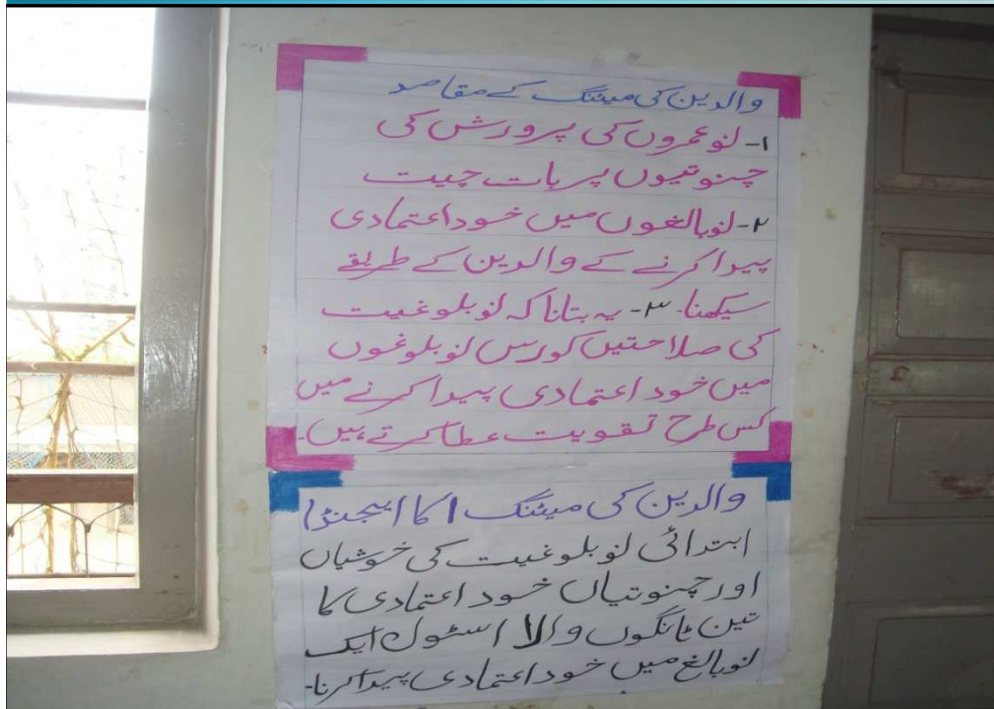 والدین کی میٹنگ کے مقاصد
۱- نو عمروں کی پرورش کی
چنوتیوں پر بات چیت
۲- نوبالغوں میں خود اعتمادی
پیدا کرنے کے والدین کے طریقے
سیکھنا۔ ۳- یہ بتانا کہ نو بلوغیت
کی صلاحتیں کورس نو بلوغوں
میں خود اعتمادی پیدا کرنے میں
کس طرح تقویت عطا کرتے ہیں۔
والدین کی میٹنگ ۱ کا ایجنڈا
ابتدائی نو بلوغیت کی خوشیاں
اور چنوتیاں خود اعتمادی کا
تین ٹانگوں والا اسٹول ایک
نوبالغ میں خود اعتمادی پیدا کرنا۔